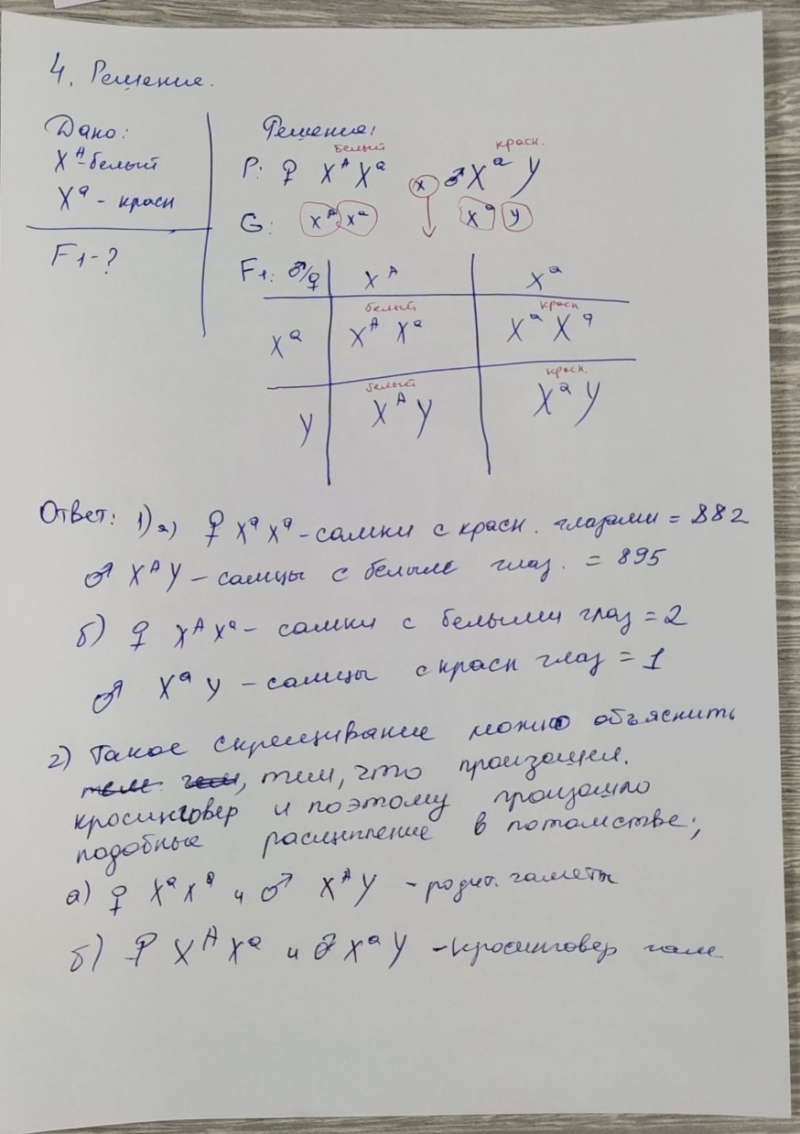 4. Решение.
Дано:
X^A - белый
X^a - красн
F1 - ?
Решение:
белый красн.
P: ♀ X^A X^a x ♂ X^a Y
G: X^A X^a X^a Y
F1: ♂/♀ X^A X^a
белый красн
X^a X^A X^a X^a X^a
белый красн.
Y X^A Y X^a Y
Ответ: 1) а) ♀ X^a X^a - самки с красн. глазами = 882
♂ X^A Y - самцы с белыми глаз. = 895
б) ♀ X^A X^a - самки с белыми глаз = 2
♂ X^a Y - самцы с красн глаз = 1
2) Такое скрещивание можно объяснить
, тем, что произошел.
кросинговер и поэтому произошло
подобные расщипление в потомстве;
а) ♀ X^a X^a и ♂ X^A Y - родит. гаметы
б) ♀ X^A X^a и ♂ X^a Y - кросинговер гаме